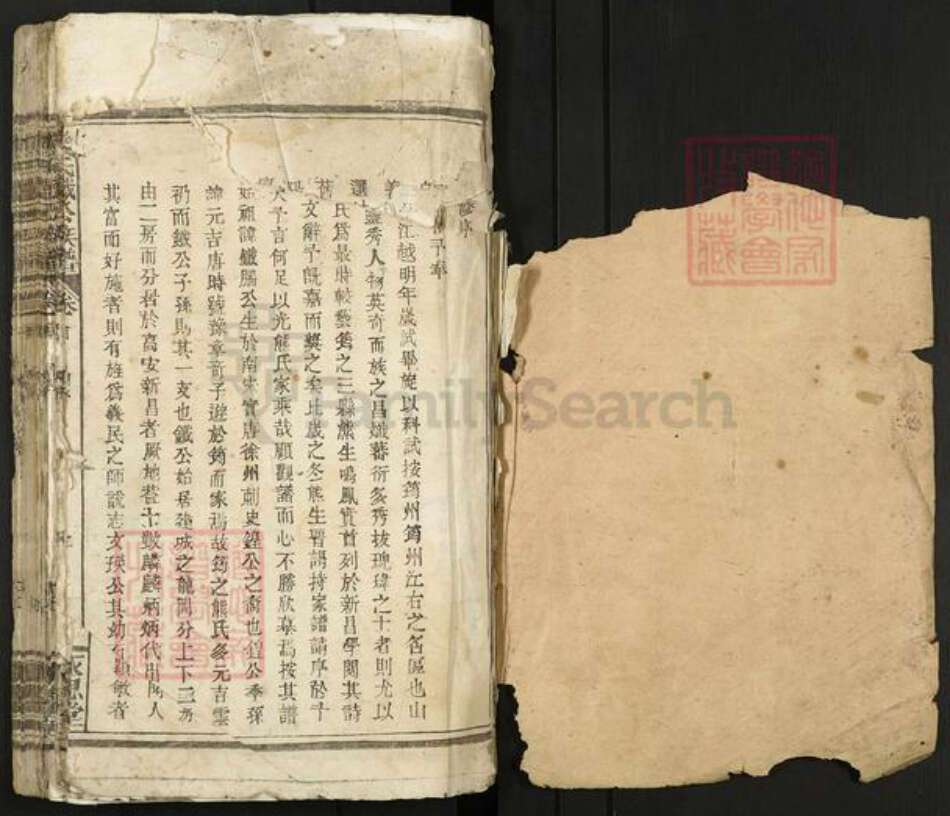 修序
予奉
江越明年歲試畢旋以科試按筠州筠州江右之名區也山
靈秀人物英奇而族之昌熾蕃衍多秀拔瑰瑋之士者則尤以
氏爲最時較藝筠之三縣熊生鳴鳳實首列於新昌學閱其詩
文辭予旣嘉而獎之矣比歲之冬熊生晋謁持家譜請序於予
予言何足以光熊氏家乘哉顧觀譜而心不勝欣慕焉按其譜
始祖諱鐵腸公生於南宋實唐徐州刺史鍠公之裔也鍠公季孫
諱元吉唐時號豫章竒子遊於筠而家焉故筠之熊氏多元吉雲
礽而鐵公子孫則其一支也鐵公始居強城之龍岡分上下二房
由二房而分居於高安新昌者厥地若十數麟麟炳炳代出聞人
其富而好施者則有旌爲義民之師說志文瑛公其幼有穎敏者
氏鐵公族譜
卷首
FamilySearch